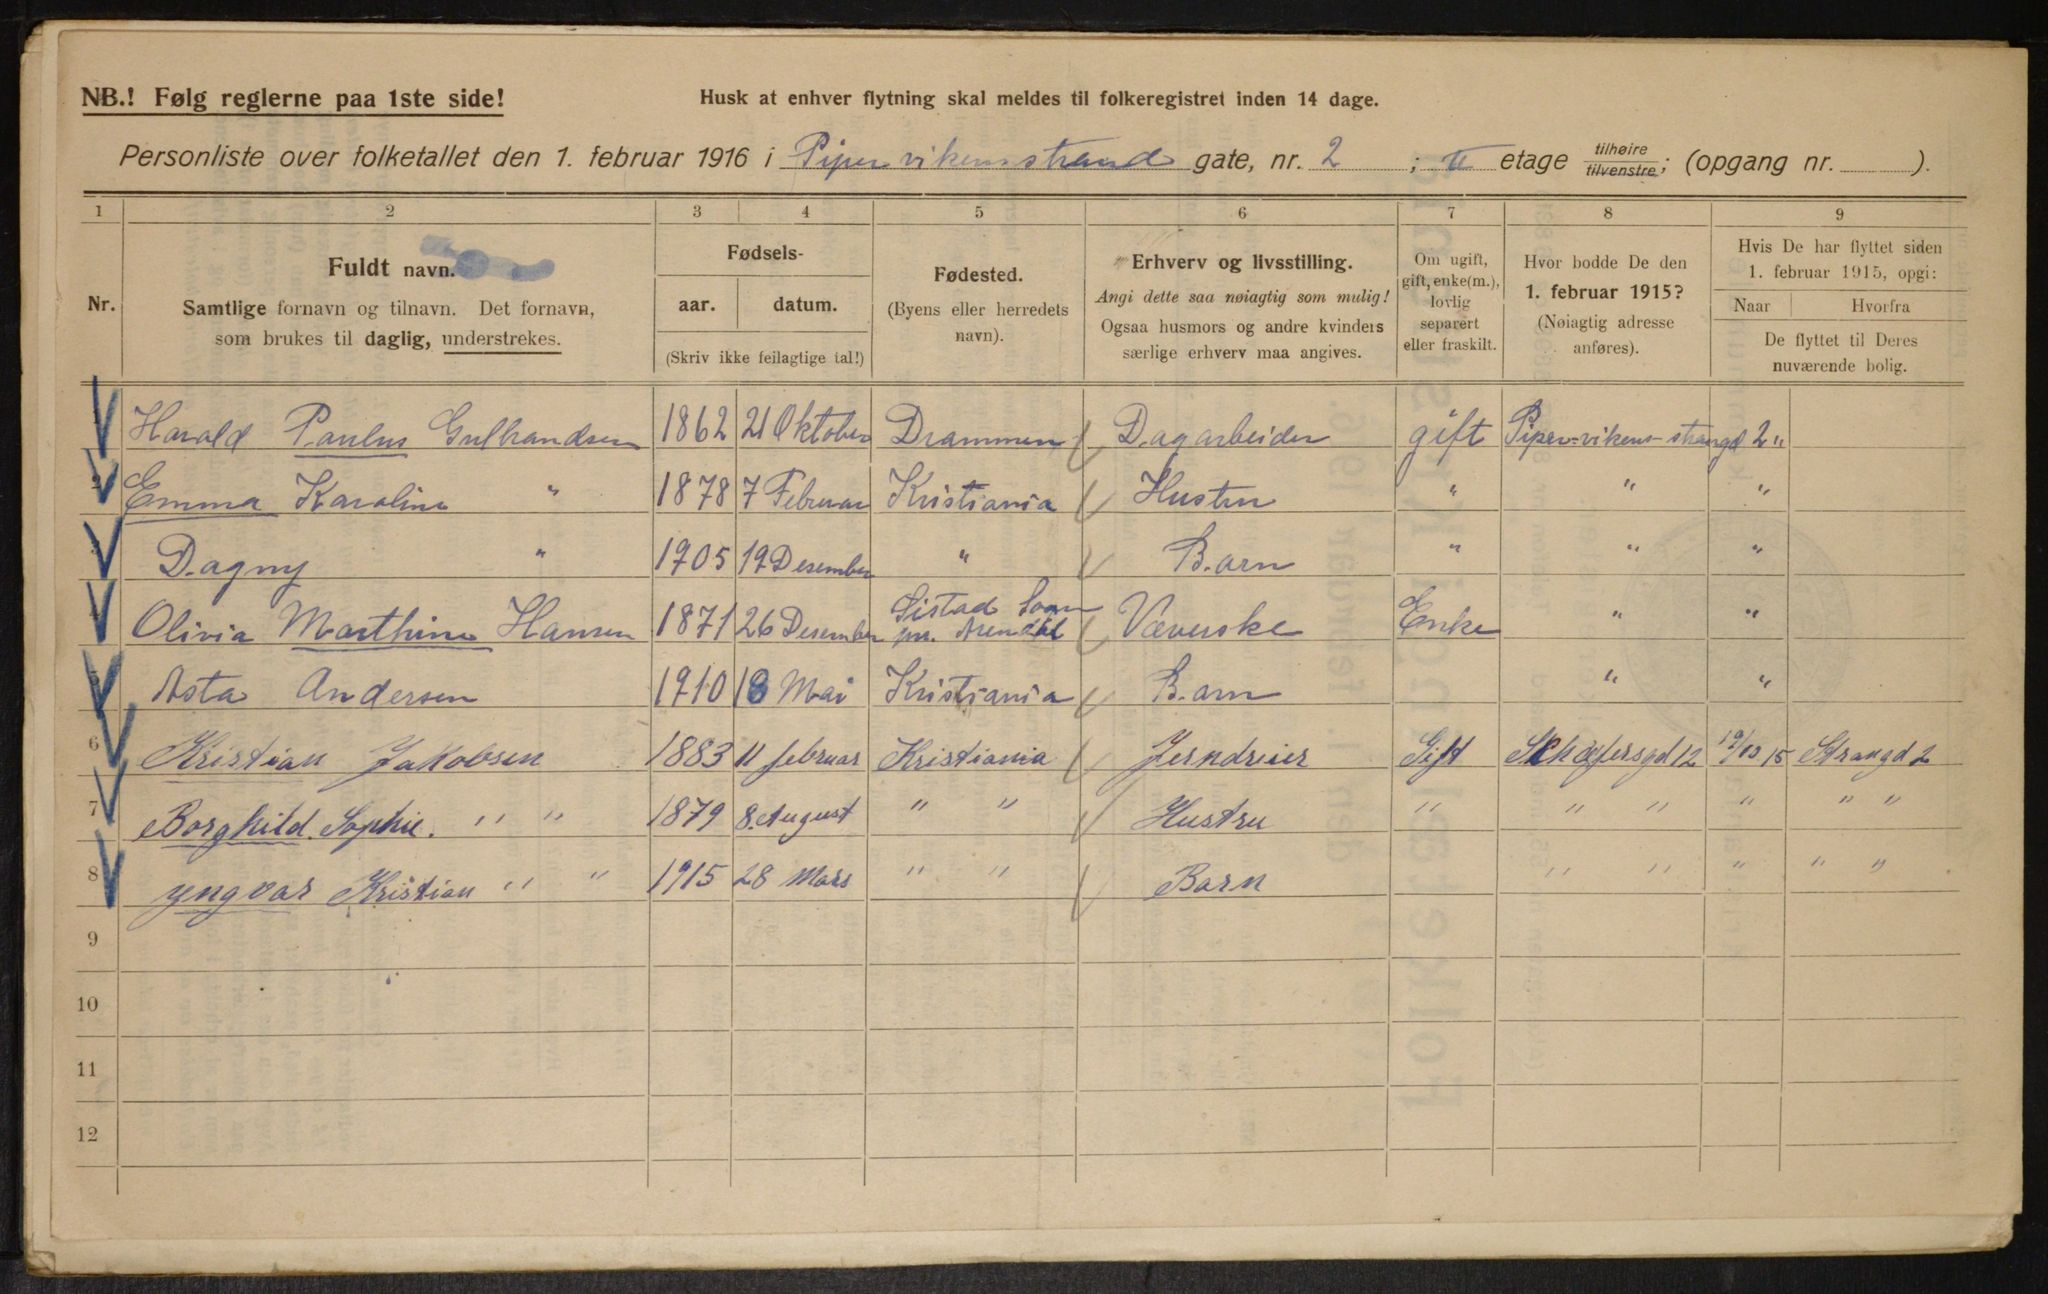 NB.! Følg reglerne paa 1ste side!
Husk at enhver flytning skal meldes til folkeregistret inden 14 dage.
Personliste over folketallet den 1. februar 1916 i Pipervikenstrand gate, nr. 2 ; II etage tilhøire tilvenstre; (opgang nr. ).
1 2 3 4 5 6 7 8 9
Nr.
Fuldt navn.
Samtlige fornavn og tilnavn. Det fornavn,
som brukes til daglig, understrekes.
Fødsels-
aar. datum.
(Skriv ikke feilagtige tal!)
Fødested.
(Byens eller herredets
navn).
Erhverv og livsstilling.
Angi dette saa nøiagtig som mulig!
Ogsaa husmors og andre kvinders
særlige erhverv maa angives.
Om ugift,
gift, enke(m.),
lovlig
separert
eller fraskilt.
Hvor bodde De den
1. februar 1915?
(Nøiagtig adresse
anføres).
Hvis De har flyttet siden
1. februar 1915, opgi:
Naar Hvorfra
De flyttet til Deres
nuværende bolig.
Harald Paulus Gulbrandsen 1862 21 Oktober Drammen Dagarbeider gift Piper-vikens-strangd 2 "
Emma Karoline " 1878 7 Februar Kristiania Hustru " " "
Dagny " 1905 19 Desember " Barn " " "
Olivia Marthine Hansen 1871 26 Desember pr. Arendal Væverske Enke " "
5 Asta Andersen 1910 18 Mai Kristiania Barn " "
6 Kristian Jakobsen 1883 11 februar Kristiania Jerndreier Gift Schæfersgd 12 19/03 15 Strangd 2
7 Borghild Sophie. " " 1879 8. August " " Hustru " " " " " "
8 Yngvar Kristian " " 1915 28 Mars " " Barn " " " " "
9
10
11
12